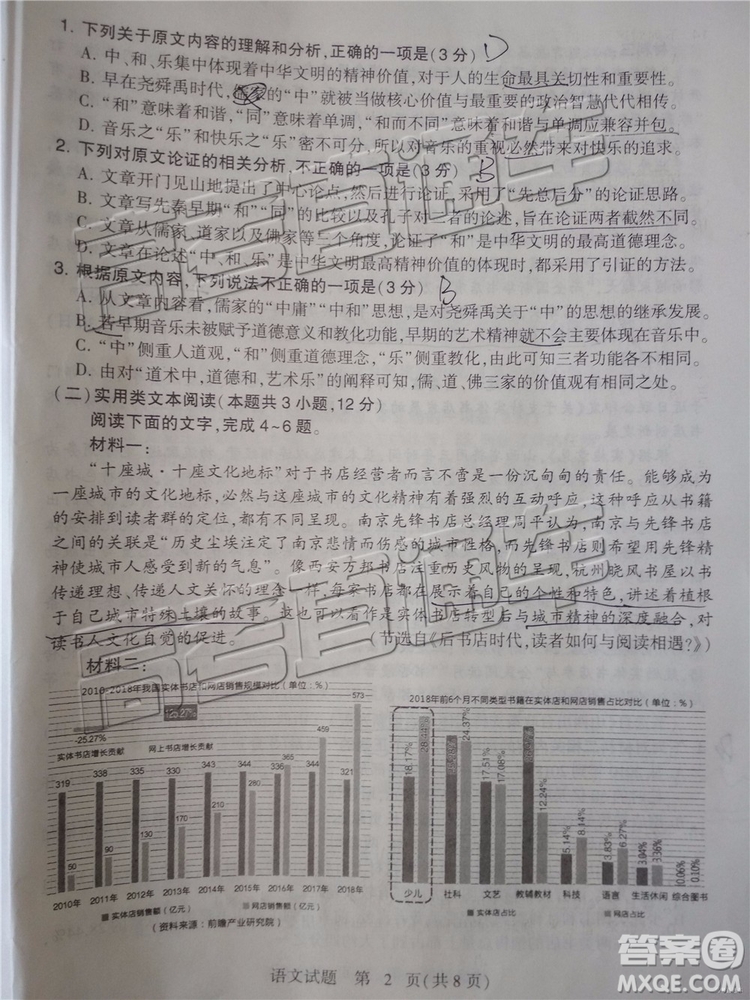 1. 下列关于原文内容的理解和分析,正确的一项是(3分) D
A. 中、和、乐集中体现着中华文明的精神价值,对于人的生命最具关切性和重要性。
B. 早在尧舜禹时代,儒家的“中”就被当做核心价值与最重要的政治智慧代代相传。
C. “和”意味着和谐,“同”意味着单调,“和而不同”意味着和谐与单调应兼容并包。
D. 音乐之“乐”和快乐之“乐”密不可分,所以对音乐的重视必然带来对快乐的追求。
2. 下列对原文论证的相关分析,不正确的一项是(3分) B
A. 文章开门见山地提出了中心论点,然后进行论证,采用了“先总后分”的论证思路。
B. 文章写先秦早期“和”“同”的比较以及孔子对二者的论述,旨在论证两者截然不同。
C. 文章从儒家、道家以及佛家等三个角度,论证了“和”是中华文明的最高道德理念。
D. 文章在论述“中、和、乐”是中华文明最高精神价值的体现时,都采用了引证的方法。
3. 根据原文内容,下列说法不正确的一项是(3分) B
A. 从文章内容看,儒家的“中庸”“中和”思想,是对尧舜禹关于“中”的思想的继承发展。
B. 若早期音乐未被赋予道德意义和教化功能,早期的艺术精神就不会主要体现在音乐中。
C. “中”侧重人道观,“和”侧重道德理念,“乐”侧重教化,由此可知三者相互交融。
D. 由对“道术中,道德和,艺术乐”的阐释可知,儒、道、佛三家的价值观有相似之处。
(二)实用类文本阅读(本题共3小题,12分)
阅读下面的文字,完成4~6题。
材料一:
“十座城·十座文化地标”对于书店经营者而言不啻是一份沉甸甸的责任。能够成为
一座城市的文化地标,必然与这座城市的文化精神有着强烈的互动呼应,这种呼应从书籍
的安排到读者群的定位,都有不同呈现。南京先锋书店总经理周平认为,南京与先锋书店
之间的关联是“历史尘埃注定了南京悲情而伤感的城市性格,而先锋书店则希望用先锋精
神使城市人感受到新的气息”。像西安万邦书店对西安历史风物的呈现,杭州晓风书屋以书
传递理想、传递人文关怀的理念一样,每家书店都在展示着自己的个性和特色,讲述着植根
于自己城市特殊土壤的故事。这也可以看作是实体书店转型后与城市精神的深度融合,对
读书人文化自觉的促进。 (节选自《后书店时代,读者如何与阅读相遇?》)
材料二:
2010-2018年我国实体书店和网店销售规模对比(单位:%)
-25.27%
实体书店增长贡献 网上书店增长贡献
319 50
338 90
339 130
340 170
344 210
344 280
336 365
344 459
321 573
2010年 2011年 2012年 2013年 2014年 2015年 2016年 2017年 2018年
实体店销售额(亿元) 网店销售额(亿元)
(资料来源:前瞻产业研究院)
2018年前6个月不同类型书籍在实体店和网店销售占比对比(单位:%)
18.17% 28.44%
17.51% 17.08%
12.24%
5.14% 8.14%
3.83% 6.27%
3.04% 3.36%
0.06% 0.10%
少儿 社科 文艺 教辅教材 科技 语言 生活休闲 综合图书
实体店占比 网店占比
语文试题 第 2 页(共8页)
高考直通车
答案圈
MXQE.COM